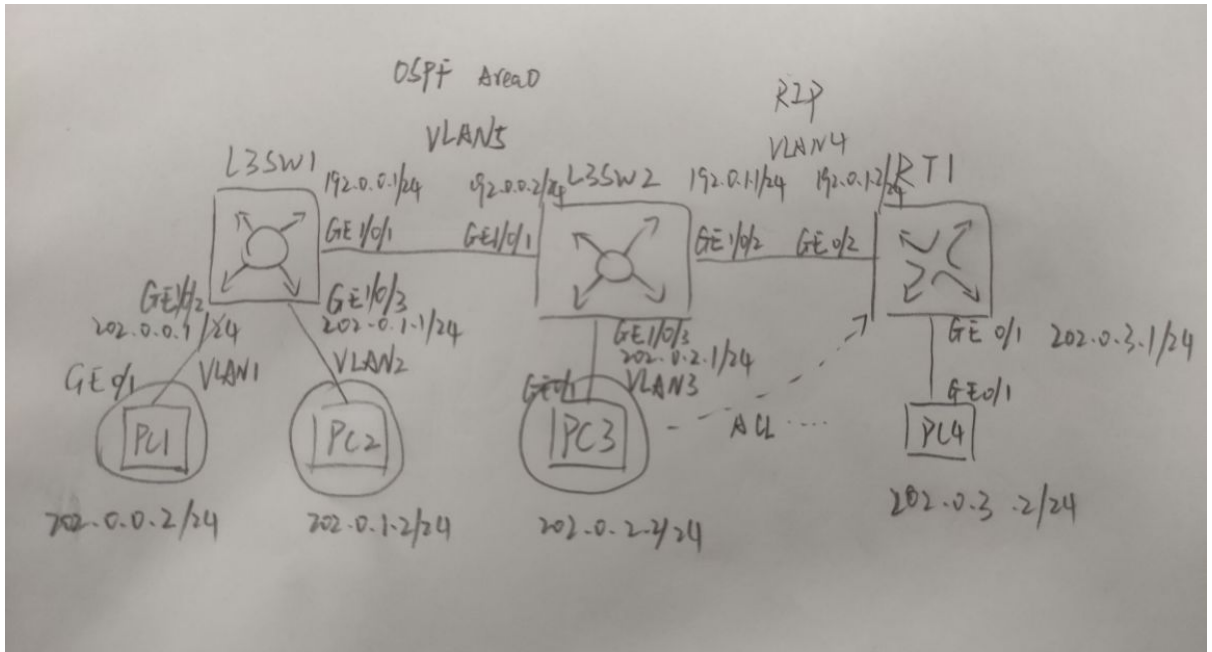 OSPF Area0
RIP
VLAN5
VLAN4
L3SW1
L3SW2
RT1
192.0.0.1/24
192.0.0.2/24
192.0.1.1/24
192.0.1.2/24
GE1/0/1
GE1/0/1
GE1/0/2
GE0/2
GE1/0/2
GE1/0/3
202.0.0.1/24
202.0.1.1/24
GE1/0/3
202.0.2.1/24
GE0/1
202.0.3.1/24
GE0/1
VLAN1
VLAN2
GE0/1
VLAN3
GE0/1
PC1
PC2
PC3
ACL .....
PC4
202.0.0.2/24
202.0.1.2/24
202.0.2.2/24
202.0.3.2/24